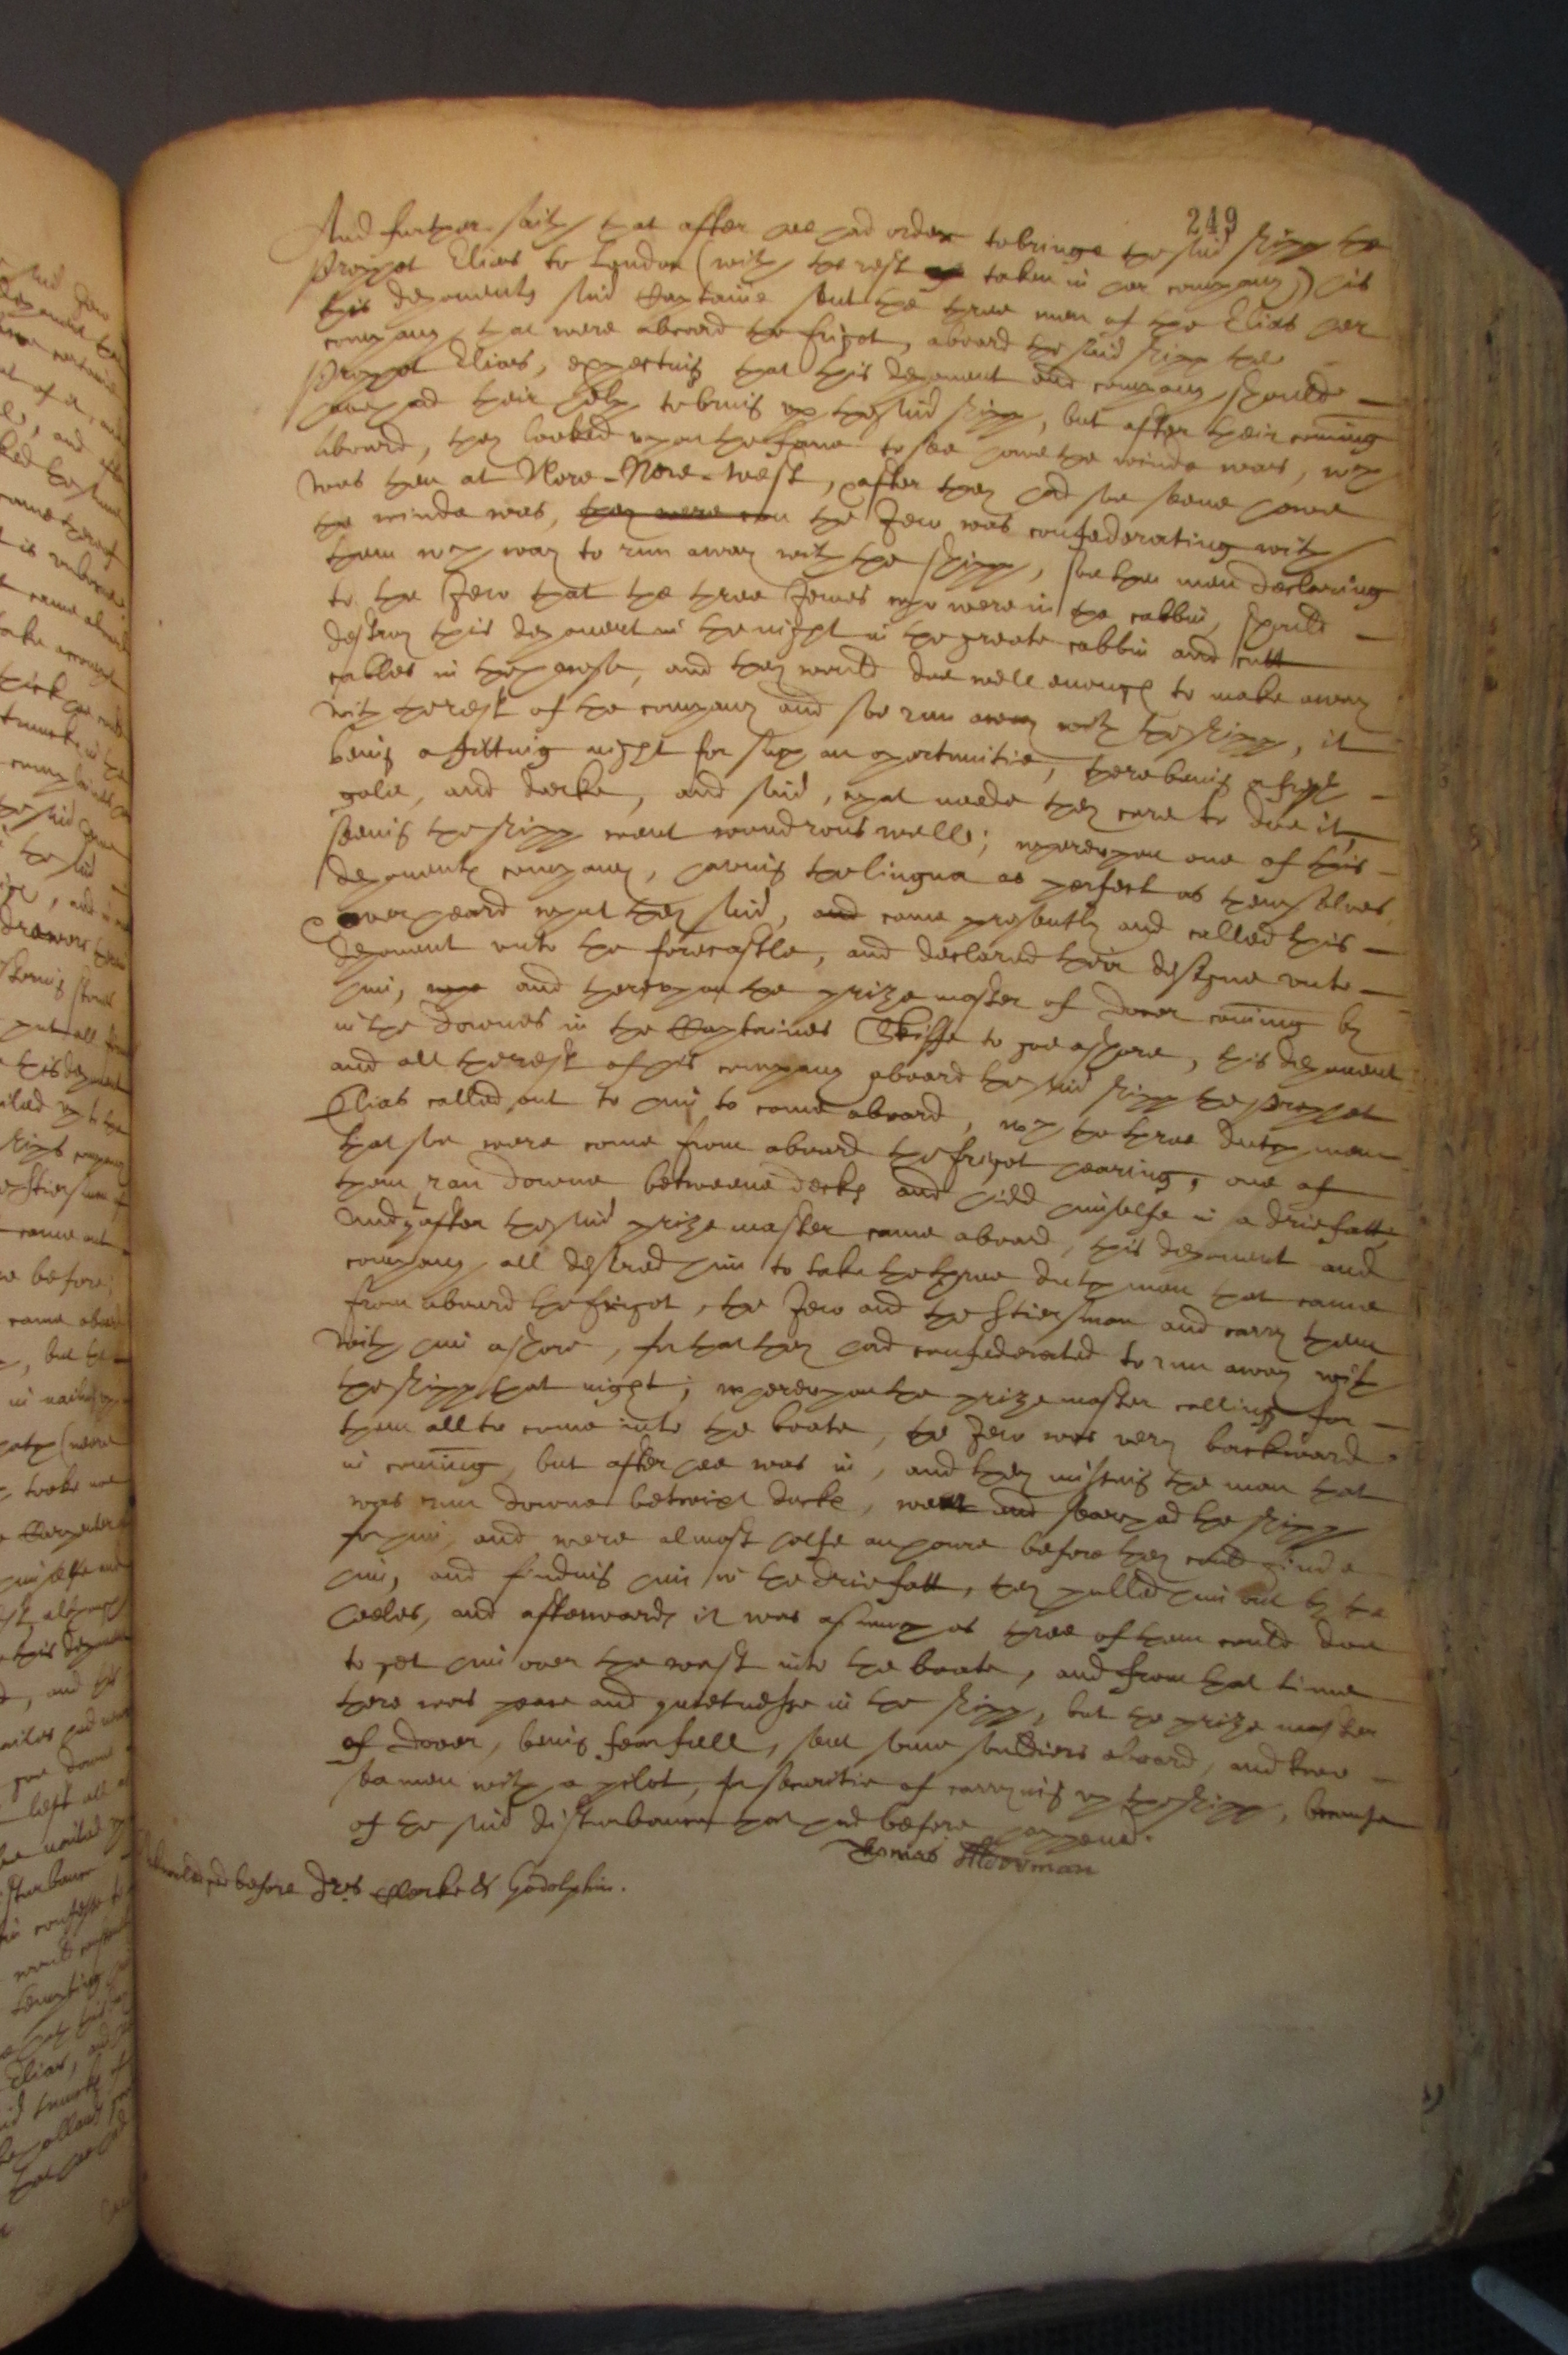 249
And further saith that after hee had order to bringe the said shipp the
Prophet Elias to London (with the rest taken in her company) his
this deponents said Captaine sent the three men of the Elias her
company that were aboard the frigot, aboard the said shipp the
Prophet Elias, expecting that this deponent and company should
have had their help to bring up the said shipp, but after their coming
aboard, they looked upon the fane to see howe the winde was, wch
was then at Nore-Nore-west, after they had soe seene howe
the winde was, they were the Jew was confederating with
them wch way to run away with the shipp, soe the men declaring
to the Jew that the three Jewes who were in the cabbin, should
destroy this deponent in the night in the greate cabbin and cutt
cables in the hawse, and they would doe well enough to make away
with the rest of the company and soe run away with the shipp, it
being a fitting night for such an oportunitie, there being a fresh
gale, and darke, and said, what neede they care to doe it,
seeing the shipp went wondrous well; whereupon one of this
deponents company, having the lingua as perfect as themselves
overheard what they said, and came presently and called this
deponent unto the forecastle, and declared their designe unto
him, and thereupon the prize master of Dover coming by
in the Downes in the Captaines Skiffe to goe ashore, this deponent
and all the rest of his company aboard the said shipp the Prophet
Elias called out to him to come aboard, wch the three dutch men
that soe were come from aboard the frigot hearing, one of
them ran downe betweene decks and hidd himselfe in a driefatt
And after the said prize master came aboard, this deponent and
company all desired him to take the three dutch men that came
from aboard the frigot, the Jew and the Stiersman and carry them
with him ashore, for that they had confederated to run away with
the shipp that night; whereupon the prize master calling for
them all to come into the boate, the Jew was very backward
in coming, but after hee was in, and they missing the man that
was run downe betwixt decks, went and searched the shipp
for him, and were almost halfe an houre before they could finde
him, and finding him in the driefatt, they pulled him out by the
heeles, and afterwards it was as much as three of them could doe
to get him over the wast into the boate, and from that time
there was peace and quietnesse in the shipp, but the prize master
of Dover, being fearfull, sent some souldiers aboard, and three
seamen with a pilot, for securitie of carrying up the shipp, because
of the said disturbance that had before happened.
Thomas Moorman
before Drs Clarke & Godolphin.